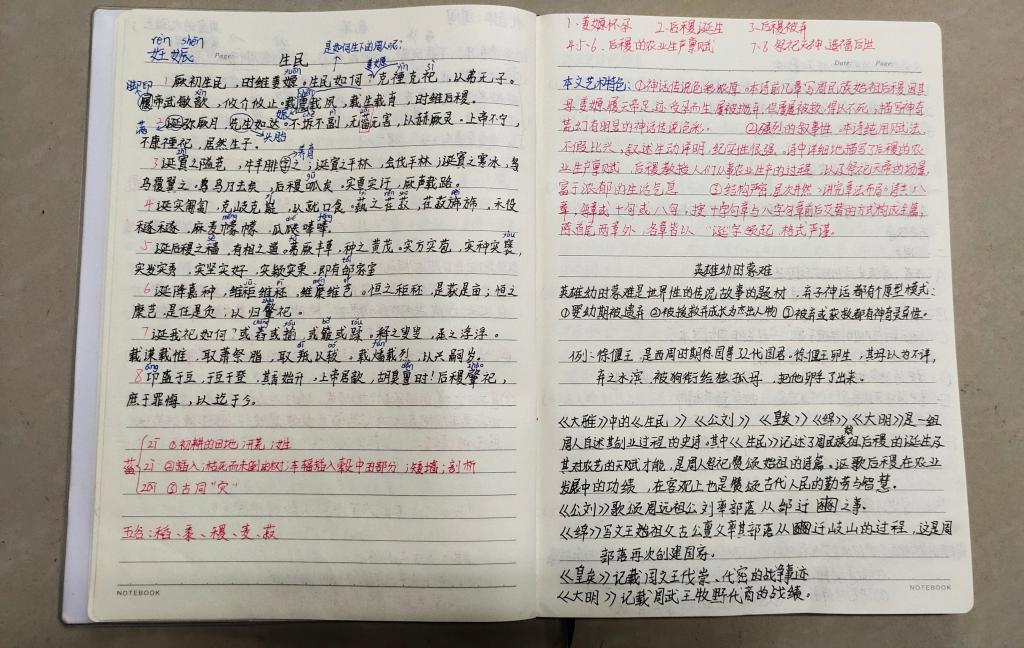 rén shēn
妊娠
是如何生下的周人呢?
Page:
生民
姜嫄
脚印
1 厥初生民,时维姜嫄。生民如何?克禋克祀,以弗无子。
履帝武敏歆,攸介攸止。载震载夙,载生载育,时维后稷。
满
2 诞弥厥月,先生如达。不坼不副,无菑无害,以赫厥灵。上帝不宁,
头胎
不康禋祀,居然生子。
养育
3 诞寘之隘巷,牛羊腓字之;诞寘之平林,会伐平林;诞寘之寒冰,鸟
鸟覆翼之。鸟乃去矣,后稷呱矣。实覃实订,厥声载路。
4 诞实匍匐,克岐克嶷,以就口食。蓺之荏菽,荏菽旆旆,禾役
穟穟,麻麦幪幪,瓜瓞唪唪。
5 诞后稷之穑,有相之道。茀厥丰草,种之黄茂。实方实苞,实种实褎,
实发实秀,实坚实好,实颖实栗,即有邰家室
6 诞降嘉种,维秬维秠,维穈维芑。恒之秬秠,是获是亩;恒之
穈芑,是任是负;以归肇祀。
7 诞我祀如何?或舂或揄,或簸或蹂。释之叟叟,烝之浮浮。
载谋载惟,取萧祭脂,取羝以軷。载燔载烈,以兴嗣岁。
8 卬盛于豆,于豆于登,其香始升,上帝居歆,胡臭亶时!后稷肇祀,
庶于罪悔,以迄于今。
菑
zī ①初耕的田地;开荒;姓
zì ②插入;枯死而未倒的树;车辐插入毂中的部分;矮墙;剖析
zāi ③古同“灾”
五谷:稻、黍、稷、麦、菽
NOTEBOOK
1.姜嫄怀孕 2.后稷诞生 3.后稷被弃
4.5-6.后稷的农业生产禀赋 7.8 祭祀天神,造福后世
Date: Page:
本文艺术特色:①神话传说色彩浓厚。本诗前几章写周民族始祖后稷,因其
母姜嫄履天帝足迹,受孕而生,屡被抛弃,但屡屡被救,得以不死,描写神奇
荒幻,有明显的神话传说色彩。 ②强烈的叙事性,本诗纯用赋法,
不假比兴,叙述生动详明,纪实性很强。诗中详细地描写了后稷的农
业生产禀赋,后稷教授人们从事农业生中的过程,以及祭祀天神的场景,
富于浓郁的生活气息 ③结构严密,层次井然,讲究章法布局。诗共八
章,每章或十句或八句,按十字句章与八字句章前后交替的方式构成全篇,
除首尾两章外,各章皆以“诞”字领起,格式严谨。
英雄幼时蒙难
英雄幼时蒙难是世界性的传说故事的题材,弃子神话都有个原型模式:
①婴幼期被遗弃 ②被援救并成长为杰出人物 ③被弃或获救都有神奇灵异性。
例:徐偃王,是西周时期徐国第32代国君。徐偃王卵生,其母以为不详,
弃之水滨,被狗衔给独孤母,把他卵孚了出来。
《大雅》中的《生民》《公刘》《皇矣》《绵》《大明》是一组
周人自述其创业过程的史诗。其中《生民》记述了周民族始祖后稷的诞生及
其对农艺的天赋才能,是周人祭祀赞颂始祖的诗篇。讴歌后稷在农业
发展中的功绩,在客观上也是赞颂古代人民的勤劳与智慧。
《公刘》歌颂周远祖公刘率部落从邰迁豳之事。
《绵》写文王的祖父古公亶父率其部落从豳迁岐山的过程,这是周
部落再次创建国家。
《皇矣》记载周文王伐崇、伐密的战争事迹
《大明》记载周武王牧野伐商的战绩。
NOTEBOOK